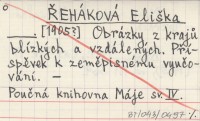 ŘEHÁKOVÁ Eliška
____. [1905?] Obrázky z krajů
blízkých a vzdálených. Pří-
spěvek k zeměpisnému vyučo-
vání. —
Poučná knihovna Máje sv. IV.